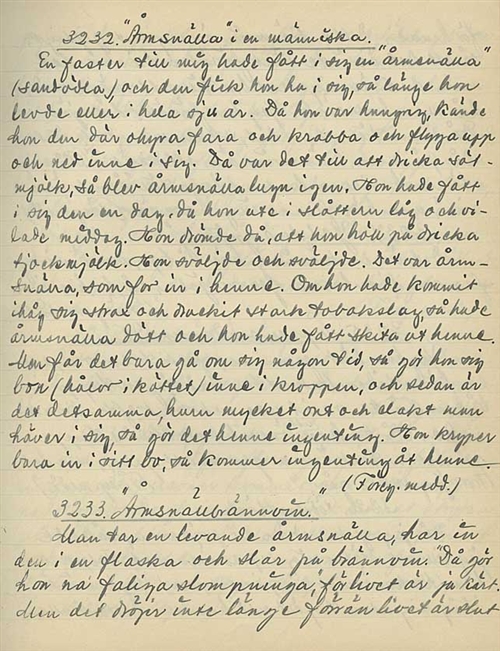 3232. "Årmsnälla" i en människa.
En faster till mig hade fått i sig en "årmsnälla"
(sandödla) och den fick hon ha i sig, så länge hon
levde eller i hela sju år. Då hon var hungrig, kände
hon den där ohyra fara och krabba och flyga upp
och ned inne i sig. Då var det till att dricka söt-
mjölk, så blev årmsnälla lugn igen. Hon hade fått
i sig den en dag, då hon ute i slåttern låg och vi-
lade middag. Hon drömde då, att hon höll på dricka
tjockmjölk. Hon sväljde och sväljde. Det var årm-
snälla, som for in i henne. Om hon hade kommit
ihåg sig strax och druckit stark tobakslag, så hade
årmsnälla dött och hon hade fått skita ut henne.
Men får det bara gå om sig någon tid, så gör hon sig
bon (hålor i köttet) inne i kroppen, och sedan är
det detsamma, huru mycket ont och elakt man
häver i sig, så gör det henne ingenting. Hon kryper
bara in i sitt bo, så kommer ingenting åt henne.
(Föreg. medd.)
3233. "Årmsnällbrännvin."
Man tar en levande årmsnälla, har in
den i en flaska och slår på brännvin. "Då gör
hon na faliga slompninga, för livet är ju kärt.
Men det dröjer inte länge förrän livet är slut